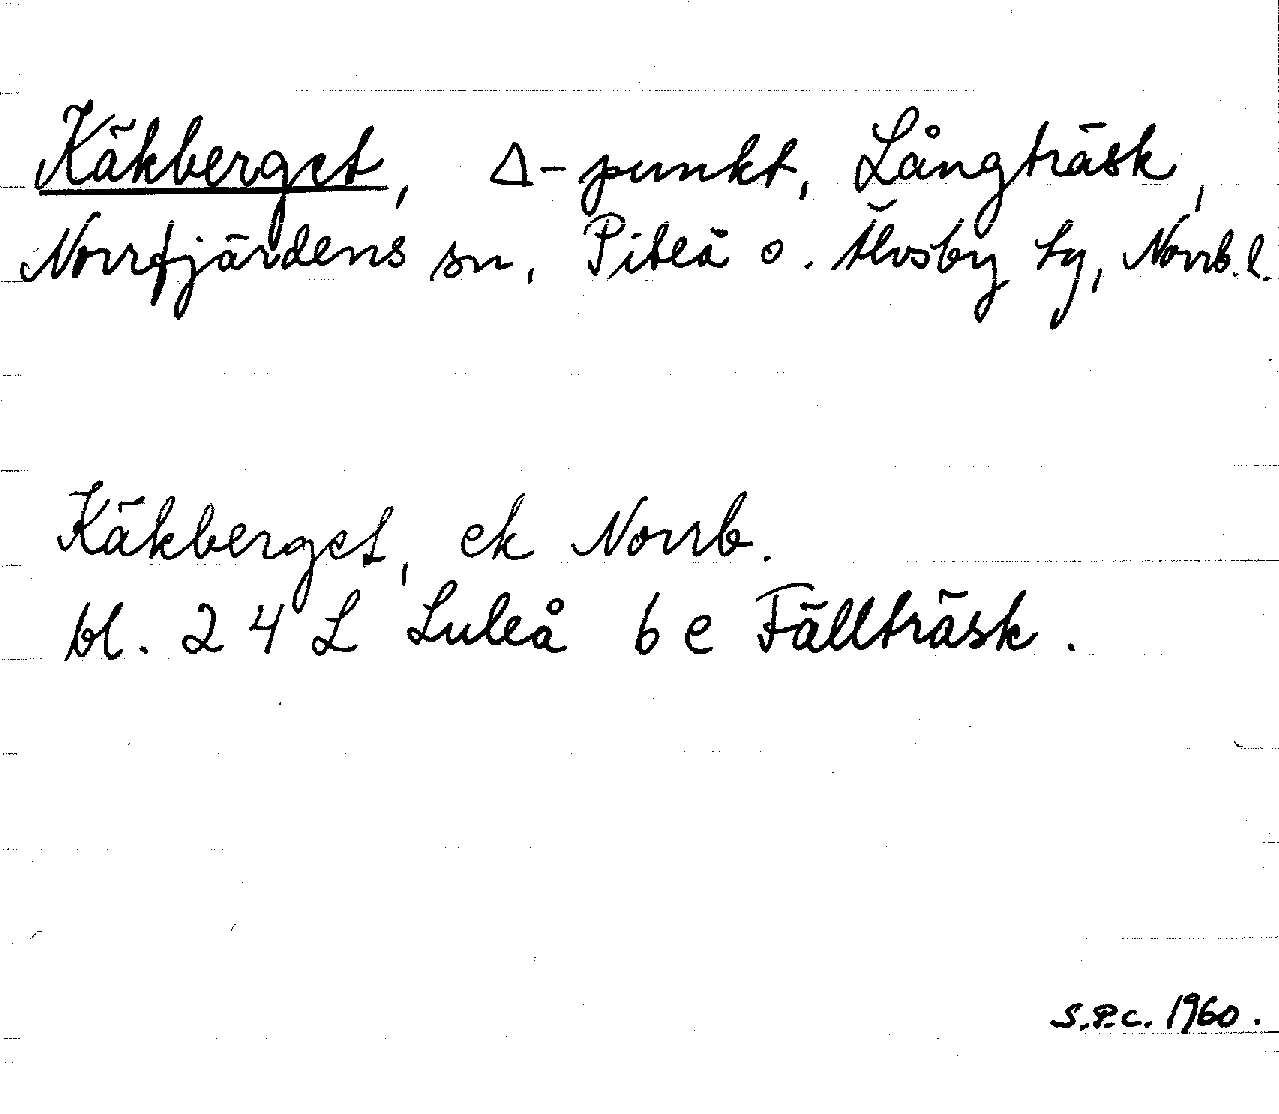 Käkberget, Δ-punkt, Långträsk,
Norrfjärdens sn, Piteå o. Älvsby tg, Norrb. l.
Käkberget, ek Norrb.
bl. 24 L Luleå 6 e Fällträsk.
S.P.C. 1960.